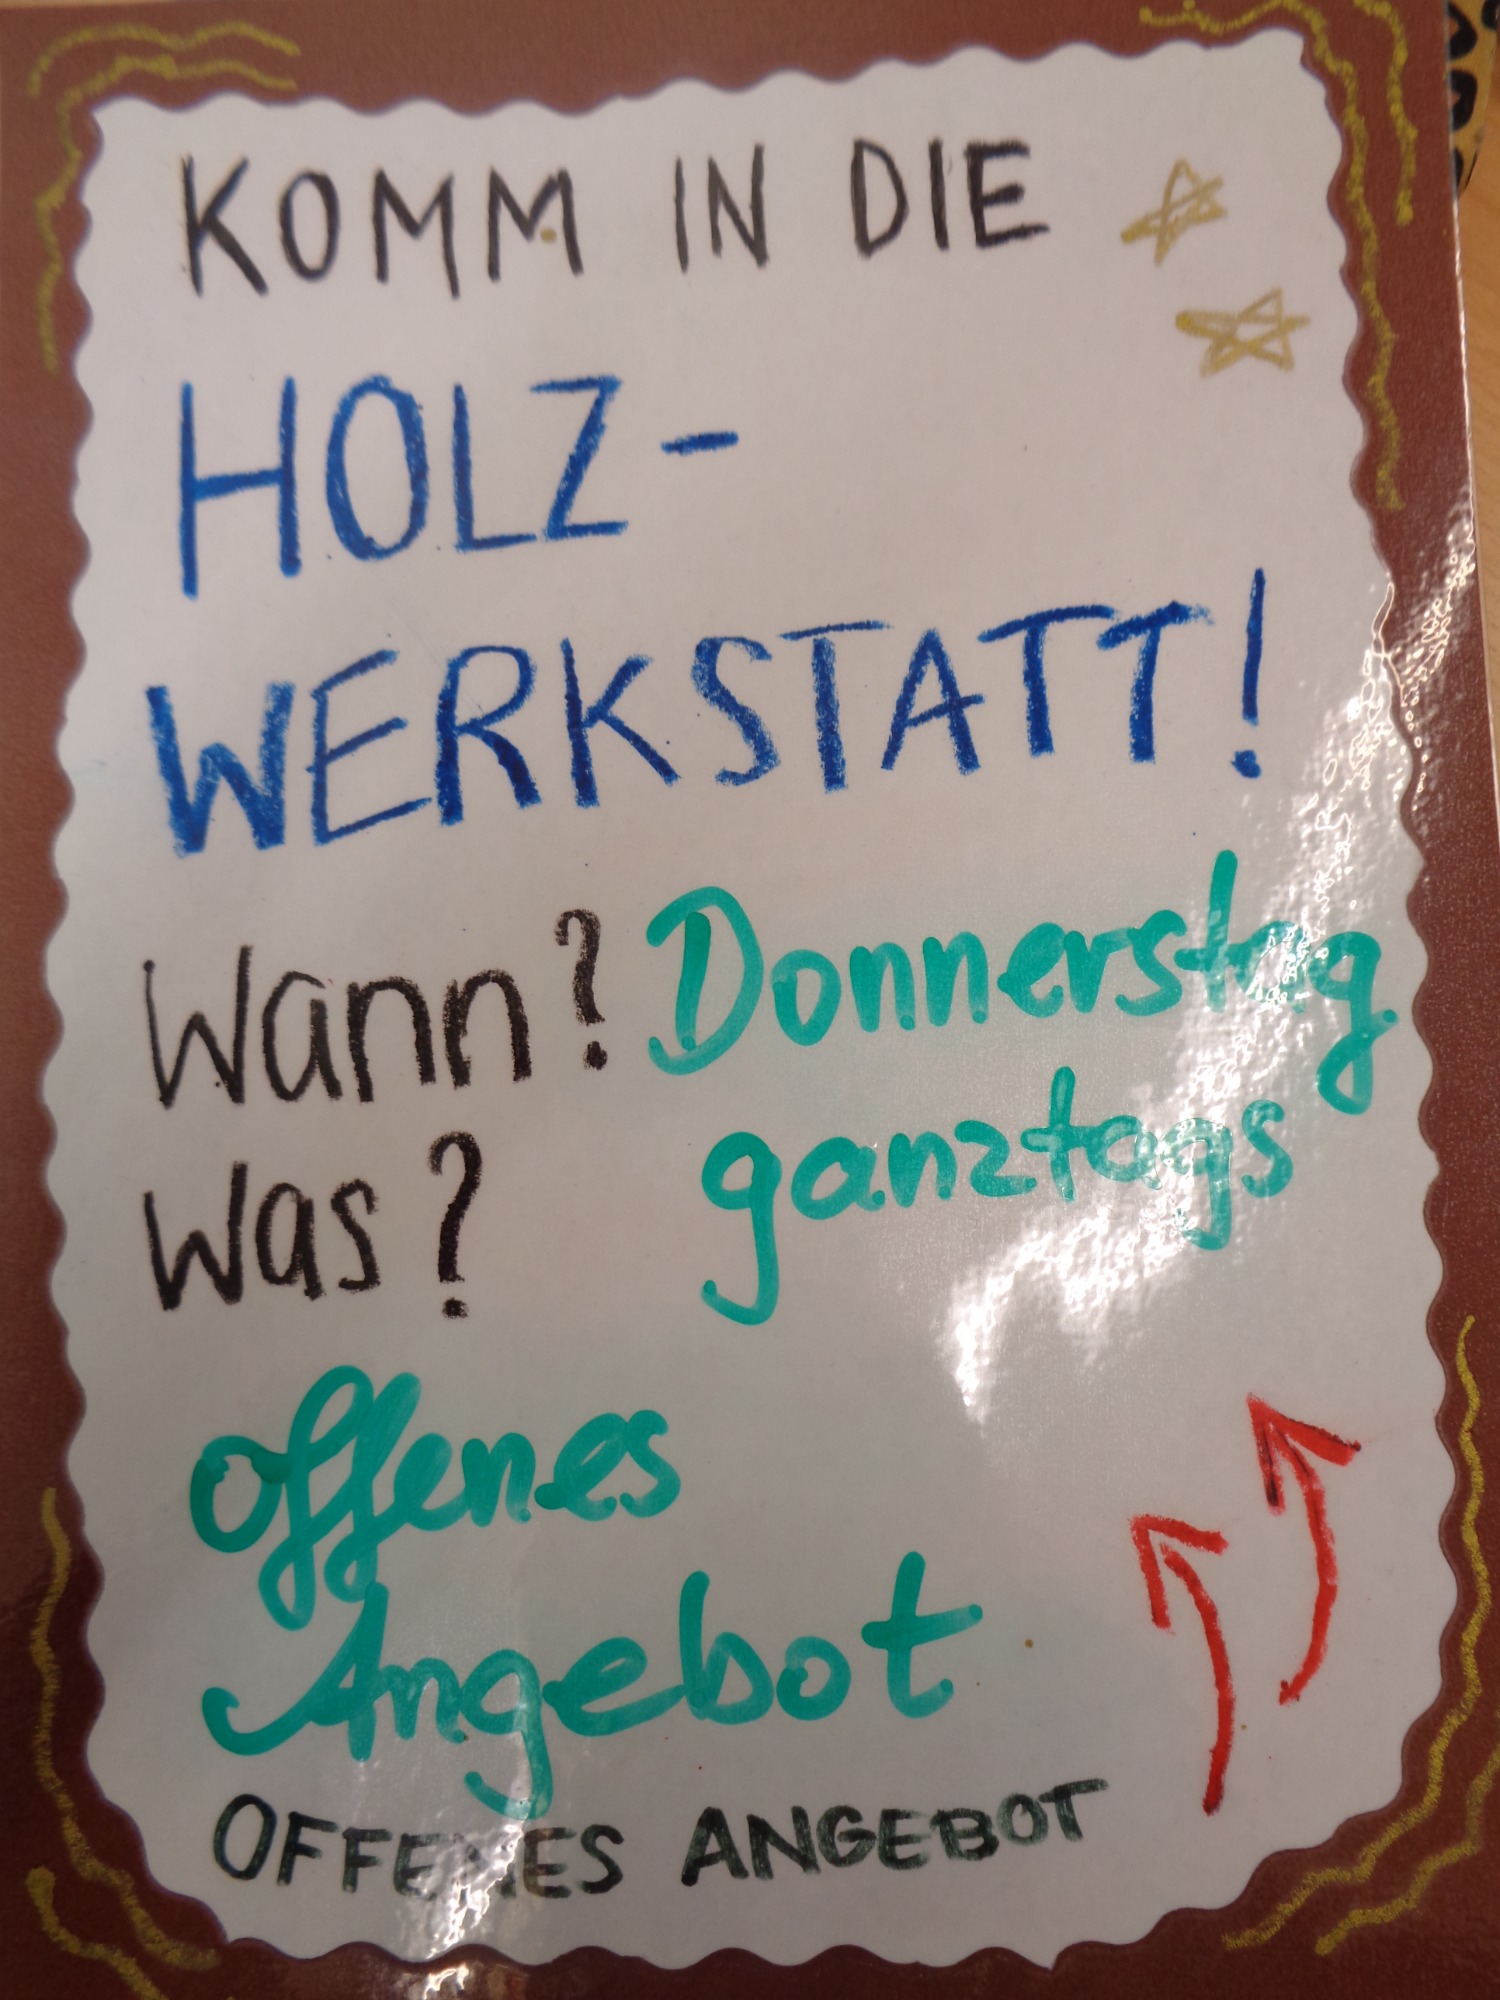 KOMM IN DIE
HOLZ-
WERKSTATT!
Wann? Donnerstag
ganztags
Was?
offenes
Angebot
OFFENES ANGEBOT